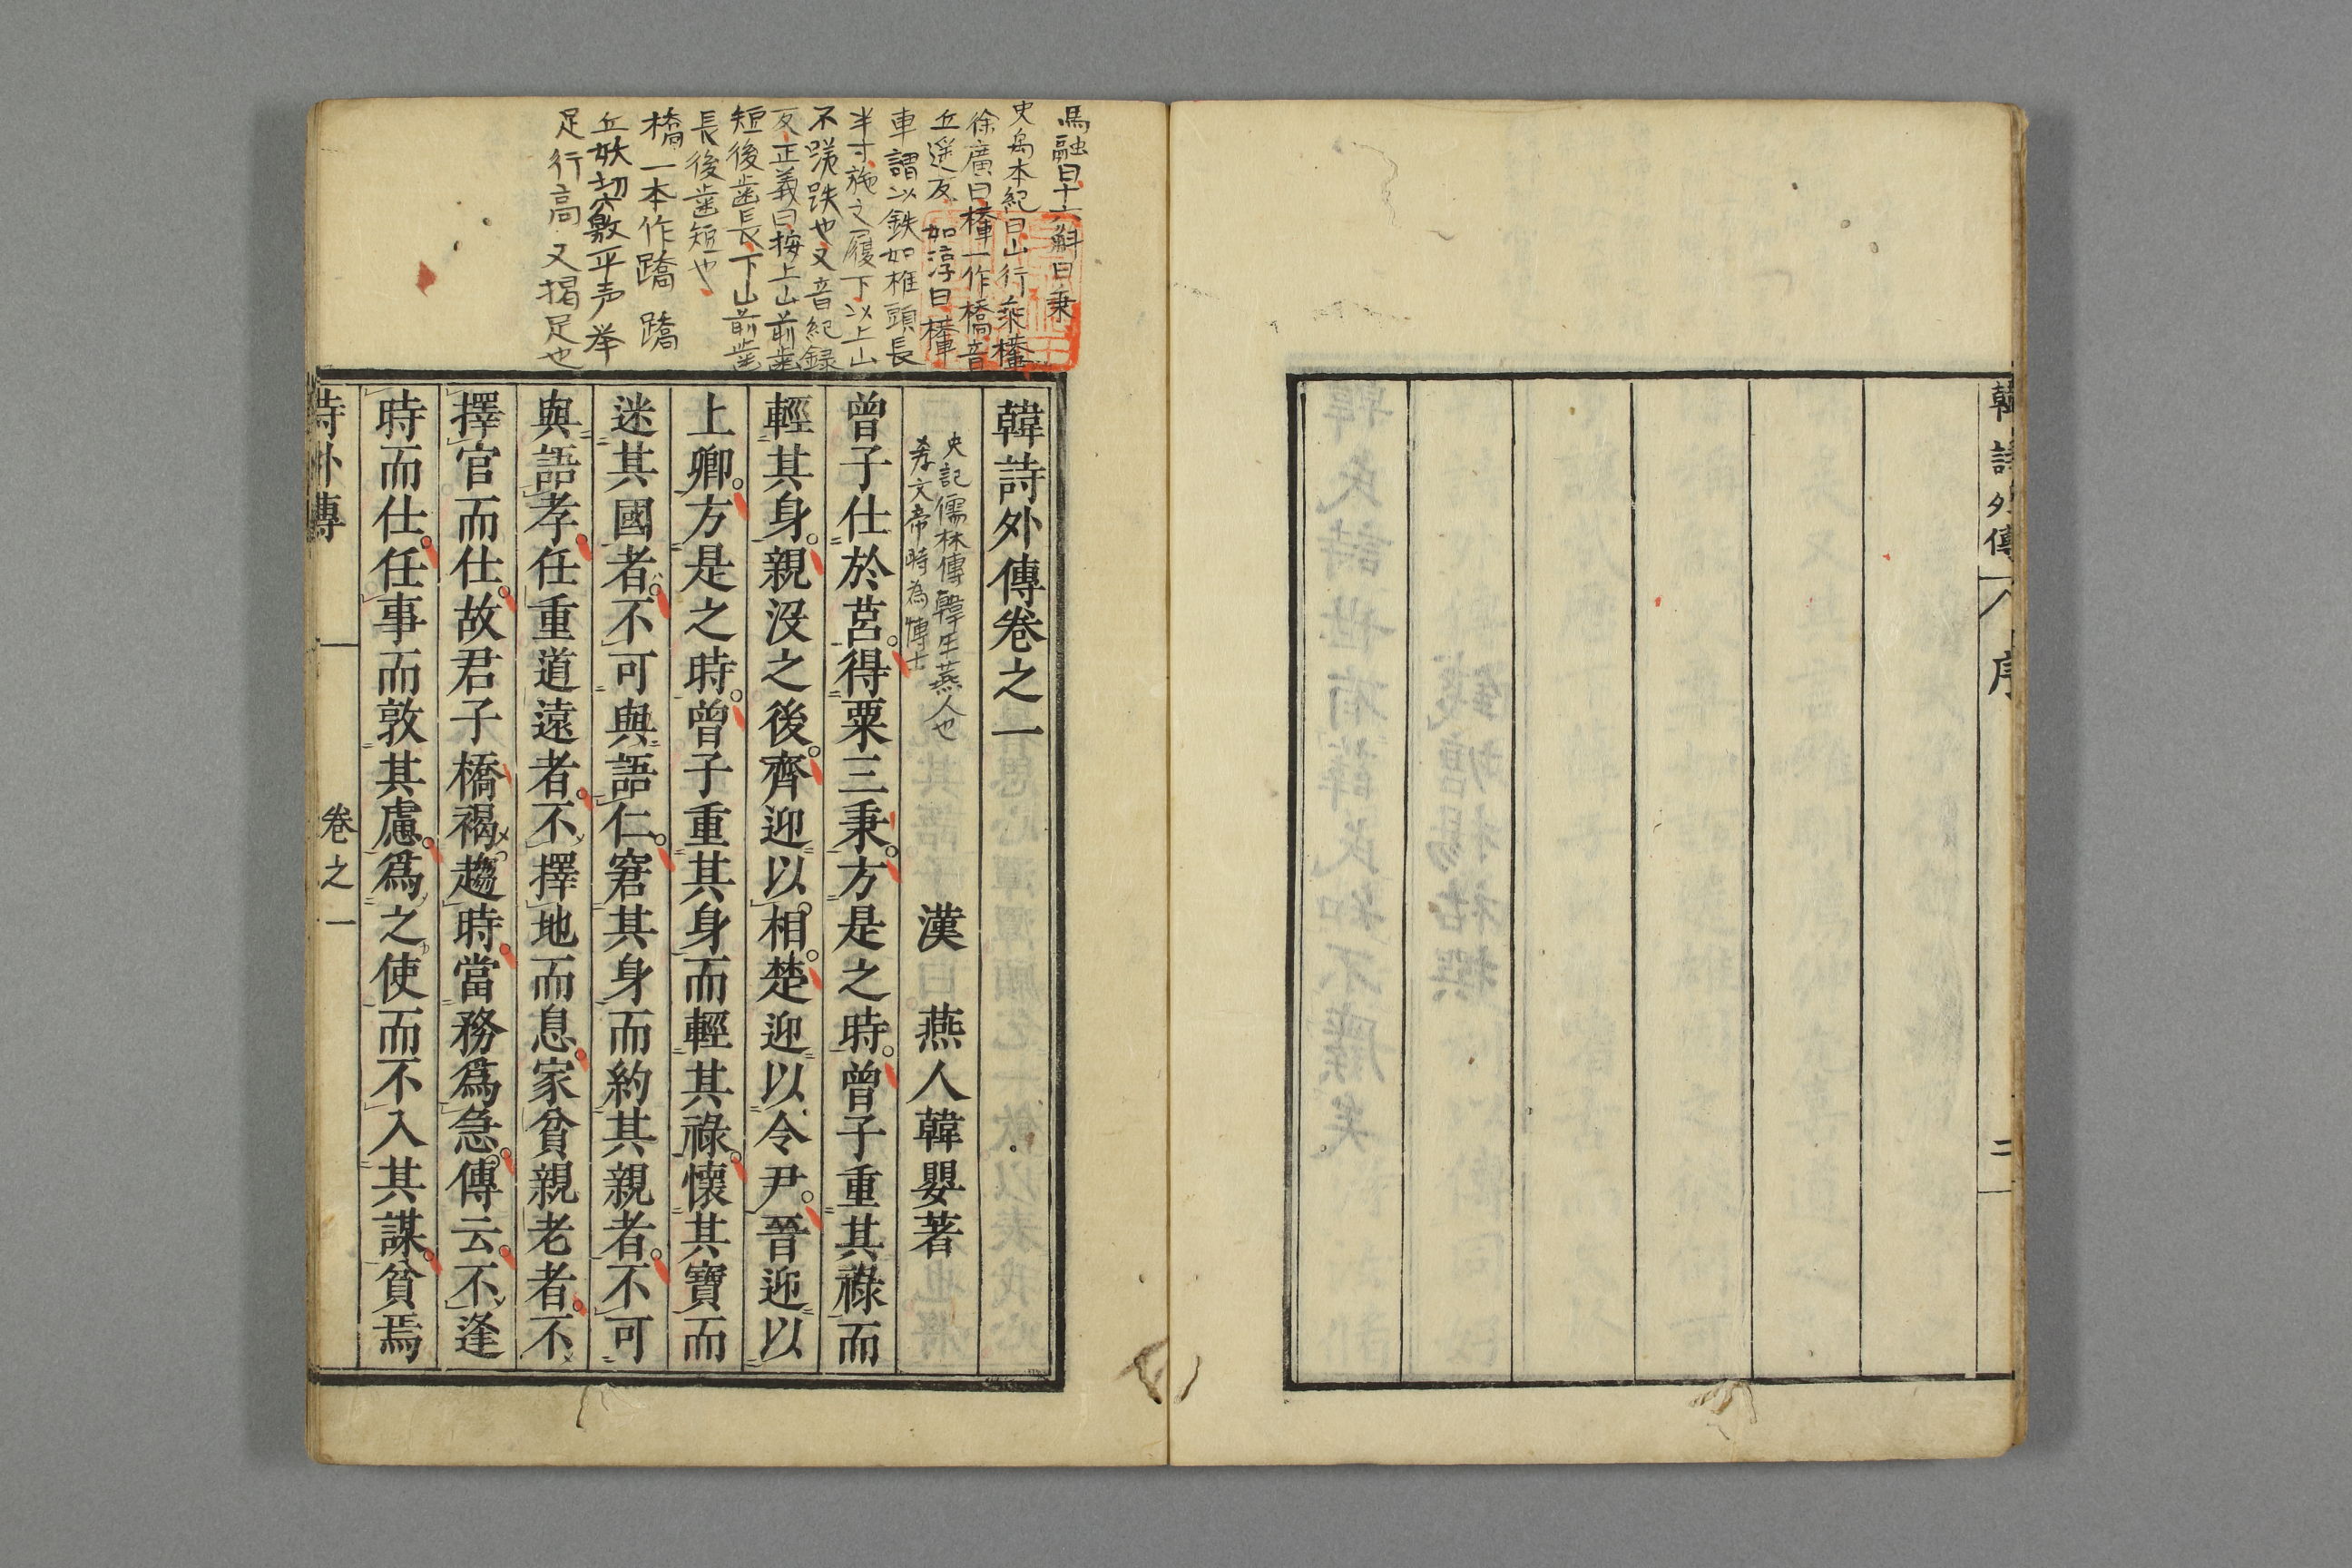 韓詩外傳
序
二
馬融曰十六斛曰秉
史禹本紀曰山行乘檋
徐廣曰檋一作橋音
丘遥反如淳曰檋
車謂以鉄如椎頭長
半寸施之履下以上山
不蹉跌也又音紀録
反正義曰按上山前歯
短後歯長下山前歯
長後歯短也
橋一本作蹻蹻
丘妖切
平声举
足行高又揭足也
韓詩外傳卷之一
史記儒林傳韓生燕人也
孝文帝時為博士
漢 燕人韓嬰著
曾子仕於莒得粟三秉方是之時曾子重其祿而
輕其身親没之後齊迎以相楚迎以令尹晉迎以
上卿方是之時曾子重其身而輕其祿懷其寶而
迷其國者不可與語仁窘其身而約其親者不可
與語孝任重道遠者不擇地而息家貧親老者不
擇官而仕故君子橋褐趨時當務爲急傳云不逢
時而仕任事而敦其慮爲之使而不入其謀貧焉
詩外傳 卷之一